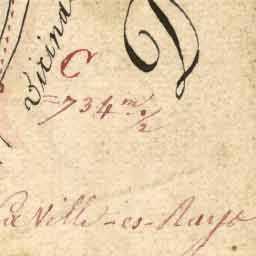 Vicina
C
=734 m. 2
D
La Ville-es-Rays